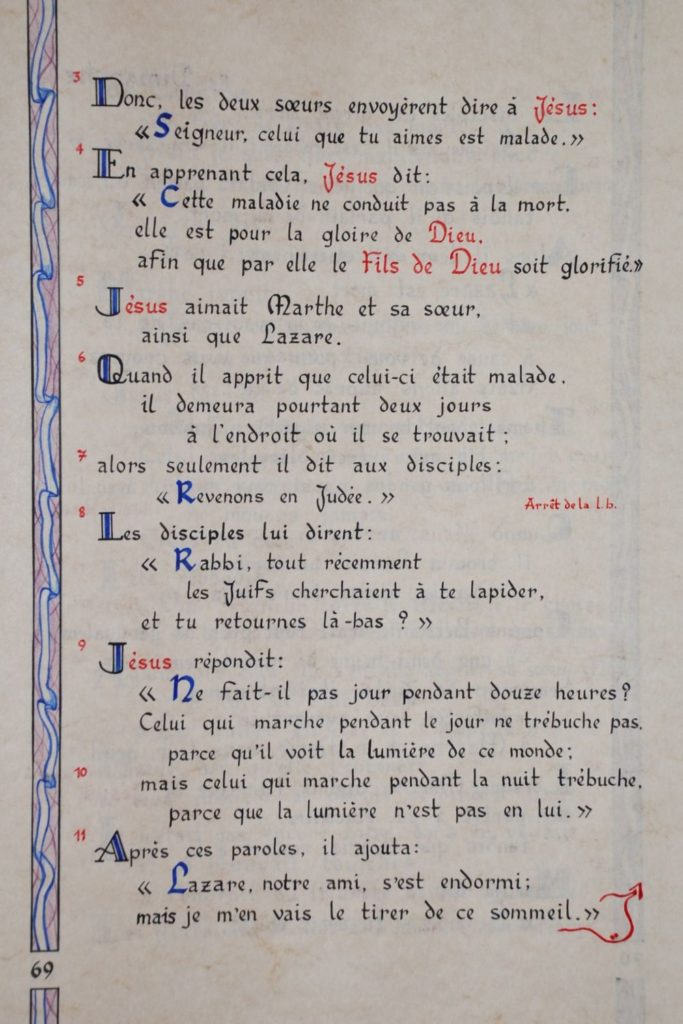 3 Donc, les deux sœurs envoyèrent dire à Jésus:
« Seigneur, celui que tu aimes est malade. »
4 En apprenant cela, Jésus dit:
« Cette maladie ne conduit pas à la mort.
elle est pour la gloire de Dieu.
afin que par elle le Fils de Dieu soit glorifié.»
5 Jésus aimait Marthe et sa sœur,
ainsi que Lazare.
6 Quand il apprit que celui-ci était malade.
il demeura pourtant deux jours
à l'endroit où il se trouvait ;
7 alors seulement il dit aux disciples:
« Revenons en Judée. »
Arrêt de la l.b.
8 Les disciples lui dirent:
« Rabbi, tout récemment
les Juifs cherchaient à te lapider,
et tu retournes là-bas ? »
9 Jésus répondit:
« Ne fait-il pas jour pendant douze heures?
Celui qui marche pendant le jour ne trébuche pas,
parce qu'il voit la lumière de ce monde;
10 mais celui qui marche pendant la nuit trébuche,
parce que la lumière n'est pas en lui. »
11 Après ces paroles, il ajouta:
« Lazare, notre ami, s'est endormi;
mais je m'en vais le tirer de ce sommeil. »
69